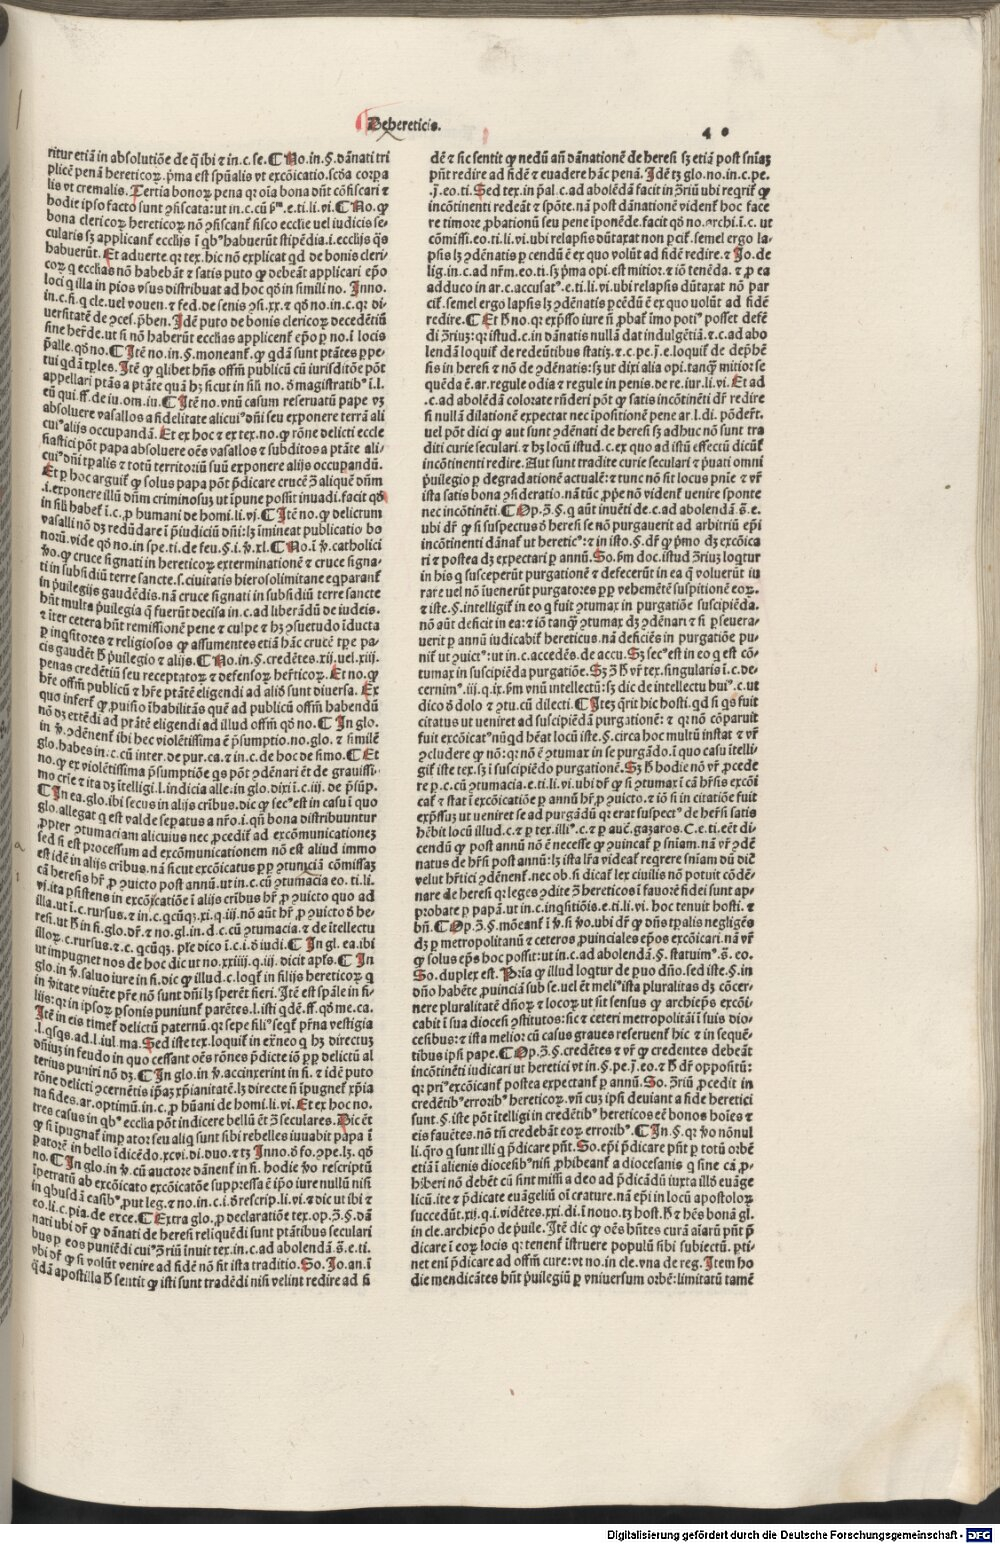 De hereticis.
4 0
ritur etiā in absolutiōe de q̄ ibi ⁊ in.c.se. ¶ No.in.§.dānati tri
plicē penā hereticoꝝ.p̄ma est spūalis vt excōicatio.scd̄a corpa
lis vt cremalis. Tertia bonoꝝ pena qꝛ oīa bona dn̄t cōfiscari ⁊
hodie ipso facto sunt ꝯfiscata:ut in.c.cū .e.ti.li.vi. ¶ No.ꝙ
bona clericoꝝ hereticoꝝ nō ꝯfiscant̄ fisco ecclie uel iudicis se-
cularis sꝫ applicant̄ ecclijs ī qbꝰ habuerūt stipēdia.i.ecclijs q̄s
habuerūt. Et aduerte qꝛ tex.hic nō explicat qd de bonis cleri-
coꝝ q ecclias nō habebāt ⁊ satis puto ꝙ debeāt applicari ep̄o
loci q illa in pios vsus distribuat ad hoc qđ in simili no. Inno.
in.c.fi.q cle.uel vouen.⁊ fed.de senis ꝯsi.xx.⁊ qđ no.in.c.qꝛ di-
uersitatē de ꝯces.p̄ben. Idē puto de bonis clericoꝝ decedētiū
sine herede.ut si nō haberūt ecclias applicent̄ ep̄o ꝑ no.ī locis
p̄alle.qđ no. ¶ Itē no.in.§.moneant̄.ꝙ qdā sunt ptātes ꝑpe-
tui qdā tp̄les. Itē ꝙ qlibet hn̄s offm̄ publicū cū iurisditōe pōt
appellari ptās a ptāte quā hꝫ sicut in sili no. đ magistratibꝰ ī.l.
eū qui.ff.de iu.om.iu. ¶ Itē no.vnū casum reseruatū pape vꝫ
absoluere vasallos a fidelitate alicuiꝰ dn̄i seu exponere terrā ali
cuiꝰ alijs occupandā. Et ex hoc ⁊ ex tex.no.ꝙ rōne delicti eccle
siastici pōt papa absoluere oēs vasallos ⁊ subditos a ptāte ali-
cuiꝰ dn̄i tꝑalis ⁊ totū territoriū suū exponere alijs occupandū.
Et ꝑ hoc arguit̄ ꝙ solus papa pōt p̄dicare crucē ꝯ̄ aliquē dn̄m
.i.exponere illū dn̄m criminosuꝫ ut īpune possit inuadi.facit qđ
in sili habet̄ ī.c.ꝓ humani de homi.li.vj. ¶ Itē no.ꝙ delictum
vasalli nō dꝫ redūdare ī p̄iudiciū dn̄i:lꝫ imineat publicatio bo
norū.vide qđ no.in spe.ti.de feu.§.i.ꝟ.xl. ¶ No.ī ꝟ.catholici
ꝟo.ꝙ cruce signati in hereticoꝝ exterminationē ⁊ cruce signa-
ti in subsidiū terre sancte.s.ciuitatis hierosolimitane eqꝑant̄
in p̄uilegijs gaudēdis.nā cruce signati in subsidiū terre sancte
hn̄t multa p̄uilegia q̄ fuerūt decisa in.c.ad liberādū de iudeis.
⁊ iter cetera hn̄t remissionē pene ⁊ culpe ⁊ hꝫ ꝯsuetudo īducta
ꝑ inqsitores ⁊ religiosos ꝙ assumentes etiā hāc crucē tꝑe pa-
cis gaudēt  p̄uilegio ⁊ alijs. ¶ No.in.§.credētes.xij.uel.xiij.
penas credētiū seu receptatoꝝ ⁊ defensoꝝ her̄ticoꝝ. Et no.ꝙ
hr̄e offm̄ publicū ⁊ hr̄e ptātē eligendi ad aliđ sunt diuersa. Ex
quo infert̄ ꝙ puisio īhabilitās quē ad publicū offm̄ habendū
nō dꝫ extēdi ad ptātē eligendi ad illud offm̄ qđ no. ¶ In glo.
in ꝟ.ꝯdēnent̄ ibi hec violētissima ē p̄sumptio.no.glo.⁊ similē
glo.habes in.c.cū inter.de pur.ca.⁊ in.c.de hoc de simo. ¶ Et
no.ꝙ ex violētissima p̄sumptiōe qs pōt ꝯdēnari ēt de grauissi-
mo crīe ⁊ ita dꝫ ītelligi.l.indicia alle.in glo.dixi ī.c.iij.de p̄sūp.
¶ In ea.glo.ibi secus in alijs crībus.dic ꝙ secꝰ est in casu ī quo
glo.allegat q est valde seꝑatus a nr̄o.i.qn̄ bona distribuuntur
ꝓpter ꝯtumaciam alicuius nec ꝓcedit̄ ad excōmunicationeꝫ
sed si est processum ad excōmunicationem nō est aliud immo
est idē in alijs crībus.nā sicut excōicatus ꝑp ꝯtumciā cōmissaꝫ
cā heresis hr̄ ꝓ ꝯuicto post annū.ut in.c.cū ꝯtumacia eo.ti.li.
vj.ita ꝑsistens in excōicatiōe ī alijs crībus hr̄ ꝓ ꝯuicto quo ad
illa.ut ī.c.rursus.⁊ in.c.qcūqꝫ.xj.q.iij.nō aūt hr̄ ꝓ ꝯuicto đ he-
resi.ut  in fi.glo.dr̄.⁊ no.gl.in.d.c.cū ꝯtumacia.⁊ de ītellectu
illoꝝ.c.rursus.⁊.c.qcūqꝫ.plꝰe dico ī.c.i.đ iudi. ¶ In gl.ea.ibi
ut impugnet nos de hoc dic ut no.xxiiij.q.iij.dicit apl̄s. ¶ In
glo.in ꝟ.saluo iure in fi.dic ꝙ illud.c.loqt̄ in filijs hereticoꝝ q
in ꝟitate viuēte pr̄e nō sunt dn̄i lꝫ sperēt fieri. Itē est spāle in fi-
lijs:qꝛ in ipsoꝝ ꝑsonis puniunt̄ parētes.l.isti qdē.ff.qđ me.ca.
Itē in eis timet̄ delictū paternū.qꝛ sepe filiꝰ seqt̄ pr̄na vestigia
.l.qsqs.ad.l.iul.ma. Sed iste tex.loquit̄ in exr̄neo q hꝫ directuꝫ
dn̄iuꝫ in feudo in quo cessant oēs rōnes p̄dicte iō ꝑp delictū al
terius puniri nō dꝫ. ¶ In glo.in ꝟ.accinxerint in fi.⁊ idē puto
rōne delicti ꝯcernētis ip̄aꝫ xp̄ianitatē.lꝫ directe nī īpugnet̄ xp̄ia
na fides.ar.optimū.in.c.ꝓ hūani de homi.li.vi. Et ex hoc no.
tres casus in qbꝰ ecclia pōt indicere bellū ēt ꝯ̄ seculares. Dic ēt
ꝙ si īpugnat̄ impator seu aliq sunt sibi rebelles iuuabit papa ī
ꝑatorē in bello īdicēdo.xcvi.di.duo.⁊ tꝫ Inno.đ fo.ꝯpe.lꝫ.qđ
no. ¶ In glo.in ꝟ.cū auctore dānent̄ in fi. hodie ꝟo rescriptū
īpetratū ab excōicato excōicatōe suppressa ē ip̄o iure nullū nisi
in qbusdā casibꝰ put leg.⁊ no.in.c.i.đ rescrip.li.vi.⁊ dic ut ibi ⁊
eo.li.c.pia.de exce. ¶ Extra glo.ꝓ declaratiōe tex.op.ꝯ̄.§.dā
nati ubi dr̄ ꝙ dānati de heresi reliquēdi sunt ptātibus seculari
bus ꝑ eos puniēdi cuiꝰ ꝯ̄riū īnuit tex.in.c.ad abolendā.s̄.e.ti.
vbi dr̄ ꝙ si volūt venire ad fidē nō fit ista traditio. So. Jo.an.ī
q̄dā apostilla  sentit ꝙ isti sunt tradēdi nisi velint redire ad fi
dē ⁊ sic sentit ꝙ nedū an̄ dānationē de heresi sꝫ etiā post sniaꝫ
pn̄t redire ad fidē ⁊ euadere hāc penā. Idē tꝫ glo.no.in.c.pe.
.j.eo.ti. Sed tex.in p̄al.c.ad abolēdā facit in ꝯ̄riū ubi reqrit̄ ꝙ
incōtinenti redeāt ⁊ spōte.nā post dānationē vident̄ hoc face
re timore ꝓbationū seu pene ipōnēde.facit qđ no.archi.ī.c.ut
cōmissi.eo.ti.li.vi.ubi relapsis dūtaxat non ꝑcit̄.semel ergo la-
psis lꝫ ꝯdēnatis ꝑcendū ē ex quo volūt ad fidē redire.⁊ Jo.de
lig.in.c.ad nr̄m.eo.ti.sꝫ p̄ma opi.est mitioꝛ.⁊ iō tenēda.⁊ ꝓ ea
adduco in ar.c.accusatꝰ.e.ti.li.vi.ubi relapsis dūtaxat nō par
cit̄.semel ergo lapsis lꝫ ꝯdēnatis ꝑcēdū ē ex quo volūt ad fidē
redire. ¶ Et  no.qꝛ exp̄sso iure nī ꝓbat̄ imo potiꝰ posset defē
di ꝯ̄riuꝫ:qꝛ istud.c.in dānatis nullā dat indulgētiā.⁊.c.ad abo
lendā loquit̄ de redeūtibus statiꝫ.⁊.c.pe.j.e.loquit̄ de dep̄hē
sis in heresi ⁊ nō de ꝯdēnatis:sꝫ ut dixi alia opi.tanq̄ mitioꝛ se
quēda ē.ar.regule odia ⁊ regule in penis.de re.iur.li.vi. Et ad
.c.ad abolēdā colorate rn̄deri pōt ꝙ satis incōtinēti dr̄ redire
si nullā dilationē expectat nec ipositionē pene ar.l.di.pōder̄t.
uel pōt dici ꝙ aut sunt ꝯdēnati de heresi sꝫ adhuc nō sunt tra
diti curie seculari.⁊ hꝫ locū istud.c.ex quo ad istū effectū dicūt̄
incōtinenti redire. Aut sunt tradite curie seculari ⁊ p̄uati omni
p̄uilegio ꝑ degradationē actualē:⁊ tunc nō fit locus pn̄ie ⁊ vr̄
ista satis bona ꝯsideratio.nā tūc ꝓpe nō vident̄ uenire sponte
nec incōtinēti. ¶ Op.ꝯ̄.§.q aūt inuēti de.c.ad abolendā.s̄.e.
ubi dr̄ ꝙ si suspectus đ heresi se nō purgauerit ad arbitriū ep̄i
incōtinenti dānat̄ ut hereticꝰ:⁊ in isto.§.dr̄ ꝙ p̄mo dꝫ excōica
ri ⁊ postea dꝫ expectari ꝑ annū. So.p̄m doc.istud ꝯ̄riuꝫ loqtur
in his q susceperūt purgationē ⁊ defecerūt in ea q̄ voluerūt iu
rare uel nō īuenerūt purgatores ꝑp vehemētē suspitionē eoꝝ.
⁊ iste.§.intelligit̄ in eo q fuit ꝯtumax in purgatiōe suscipiēda.
nō aūt deficit in ea:⁊ iō tanq̄ ꝯtumax dꝫ ꝯdēnari ⁊ si ꝑseuera-
uerit ꝑ annū iudicabit̄ hereticus.nā deficiēs in purgatiōe pu-
nit̄ ut ꝯuictꝰ:ut in.c.accedēs.de accu. Sꝫ secꝰ est in eo q est cō-
tumax in suscipiēda purgatiōe. Sꝫ ꝯ̄  vr̄ tex.singularis ī.c.de-
cernimꝰ.iij.q.ix.p̄m vnū intellectū:sꝫ dic de intellectu huiꝰ.c.ut
dico đ dolo ⁊ ꝯtu.cū dilecti. ¶ Iteꝫ q̄rit hic hosti.qd si qs fuit
citatus ut ueniret ad suscipiēdā purgationē:⁊ qꝛ nō cōparuit
fuit excōicatꝰ nūqd hēat locū iste.§.circa hoc multū instat ⁊ vr̄
ꝯcludere ꝙ nō:qꝛ nō ē ꝯtumax in se purgādo.ī quo casu ītelli-
git̄ iste tex.sꝫ ī suscipiēdo purgationē. Sꝫ  hodie nō vr̄ ꝓcede
re ꝑ.c.cū ꝯtumacia.e.ti.li.vi.ubi dr̄ ꝙ si ꝯtumax ī cā hr̄sis excōi
cat̄ ⁊ stat ī excōicatiōe ꝑ annū hr̄ ꝓ ꝯuicto.⁊ iō si in citatiōe fuit
exp̄ssuꝫ ut ueniret se ad purgādū qꝛ erat suspectꝰ de her̄si satis
hēbit locū illud.c.⁊ ꝑ tex.illiꝰ.c.⁊ ꝑ auc̄t.gazaros.C.e.ti.eēt di-
cendū ꝙ post annū nō ē necesse ꝙ ꝯuincat̄ ꝑ sniam.nā vr̄ ꝯdē
natus de hr̄si post annū:lꝫ ista lr̄a videat̄ reqrere sniam dū dic̄
velut hr̄tici ꝯdēnent̄.nec ob.si dicat̄ lex ciuilis nō potuit cōdē-
nare de heresi qꝛ leges ꝯdite ꝯ̄ hereticos ī fauorē fidei sunt ap-
probate ꝑ papā.ut in.c.inqsitiōis.e.ti.li.vi.hoc tenuit hosti.⁊
bn̄. ¶ Op.ꝯ̄.§.mōeant̄ ī ꝟ.si ꝟo.ubi dr̄ ꝙ dn̄s tꝑalis negligēs
dꝫ ꝑ metropolitanū ⁊ ceteros ꝓuinciales ep̄os excōicari.nā vr̄
ꝙ solus ep̄s hoc possit:ut in.c.ad abolendā.§.statuimꝰ.s̄.eo.
So.duplex est. Pria ꝙ illud loqtur de ꝑuo dn̄o.sed iste.§.in
dn̄o habēte ꝓuinciā sub se.uel ēt meliꝰ ista pluralitas dꝫ cōcer-
nere pluralitatē dn̄oꝝ ⁊ locoꝝ ut sit sensus ꝙ archiep̄s excōi
cabit ī sua diocesi ꝯstitutos:sic ⁊ ceteri metropolitāi ī suis dio-
cesibus:⁊ ista melior:cū casus graues reseruent̄ hic ⁊ in sequē-
tibus ip̄si pape. ¶ Op.ꝯ̄.§.credētes ⁊ vr̄ ꝙ credentes debeāt
incōtinēti iudicari ut heretici vt in.§.pe.j.eo.⁊  dr̄ oppositū:
qꝛ priꝰ excōicant̄ postea expectant̄ ꝑ annū. So.ꝯ̄riū ꝓcedit in
credētibꝰ erroribꝰ hereticoꝝ.vn̄ cuꝫ ipsi deuiant a fide heretici
sunt.§.iste pōt ītelligi in credētibꝰ hereticos eē bonos hoīes ⁊
eis fauētes.nō tn̄ credebāt eoꝝ erroribꝰ. ¶ In.§.qꝛ ꝟo nōnul
li.q̄ro q sunt illi q p̄dicare pn̄t. So.ep̄i p̄dicare pn̄t ꝑ totū orbē
etiā ī alienis diocesibꝰ nisi ꝓhibeant̄ a diocesanis q sine cā ꝓ-
hiberi nō debēt cū sint missi a deo ad p̄dicādū iuxta illđ euāge
licū.ite ⁊ p̄dicate euāgeliū oī creature.nā ep̄i in locū apostoloꝝ
succedūt.xij.q.i.videtes.xxi.di.ī nouo.tꝫ host.  ⁊ hēs bonā gl̄.
in cle.archiep̄o de p̄uile. Itē dic ꝙ oēs hn̄tes curā aīarū pn̄t p̄
dicare ī eoꝝ locis qꝛ tenent̄ īstruere populū sibi subiectū.ꝑti-
net enī p̄dicare ad offm̄ cure:vt no.in cle.vna de reg. Item ho
die mendicātes hn̄t p̄uilegiū ꝑ vniuersum orbē:limitatū tamē
Digitalisierung gefördert durch die Deutsche Forschungsgemeinschaft - DFG